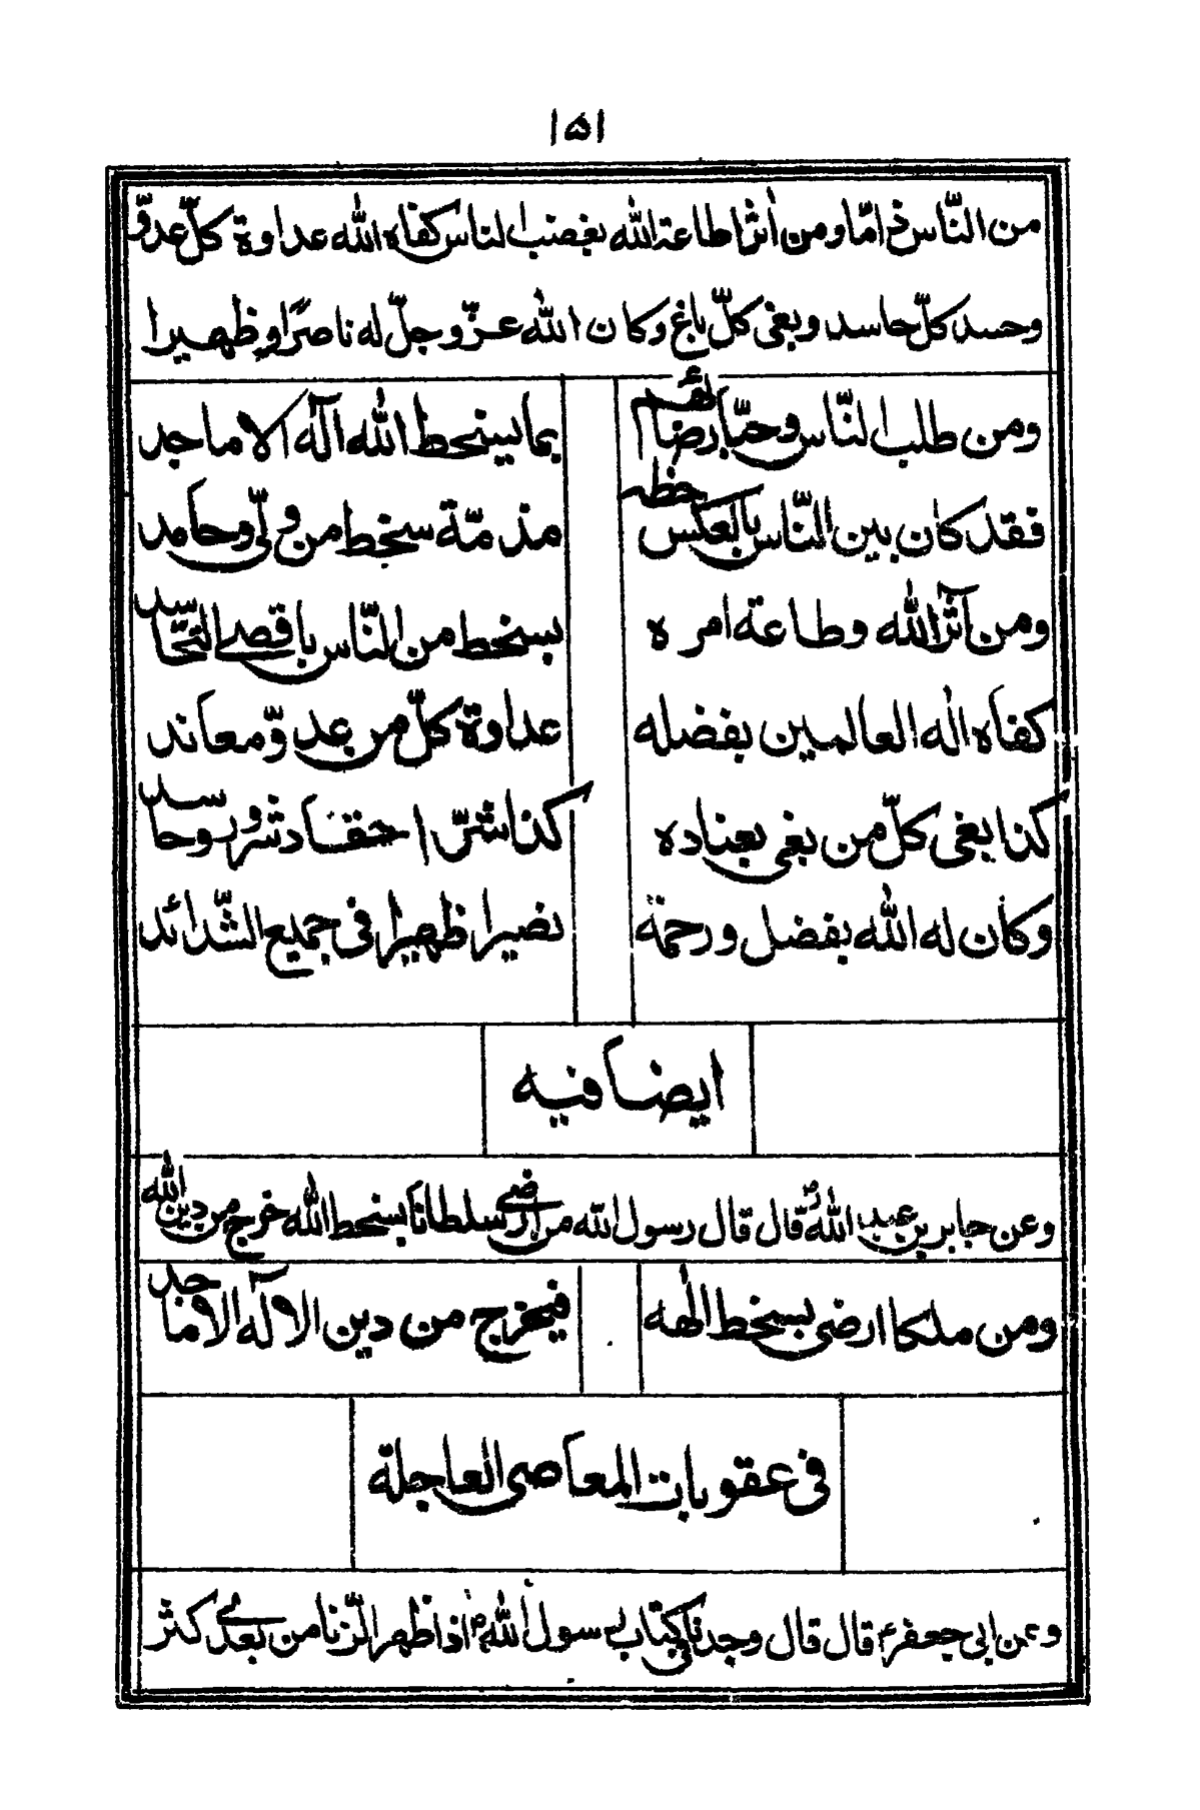 ١۵١
من النّاس ذامّا ومن اثر طاعة الله بغضب الناس كفاه الله عداوة كلّ عدوّ
وحسد كلّ حاسد وبغى كلّ باغ وكان الله عزّ وجلّ له ناصرًا وظهيرا
ومن طلب النّاس وحبّا رضائهم بما يسخط الله آله الاماجد
فقد كان بين النّاس بالعكس حظه مذمّة سخط من ولّى وحامد
ومن آثر الله وطاعة امره بسخط من النّاس باقصى التحاسد
كفاه اله العالمين بفضله عداوة كلّ من عدوّ ومعاند
كذا بغى كلّ من بغى بعناده كذا شرّ احقاد شرور وحاسد
وكان له الله بفضل ورحمة نصيرا ظهيرا فى جميع الشّدائد
ايضا فيه
وعن جابر بن عبد الله قال قال رسول الله من ارضى سلطانا بسخط الله خرج من دين الله
ومن ملكا ارضى بسخط الهه فيخرج من دين الاله الاماجد
فى عقوبات المعاصى العاجلة
وعن ابى جعفر قال قال وجدنا فى كتاب رسول الله اذا ظهر الزّنا من بعدى كثر